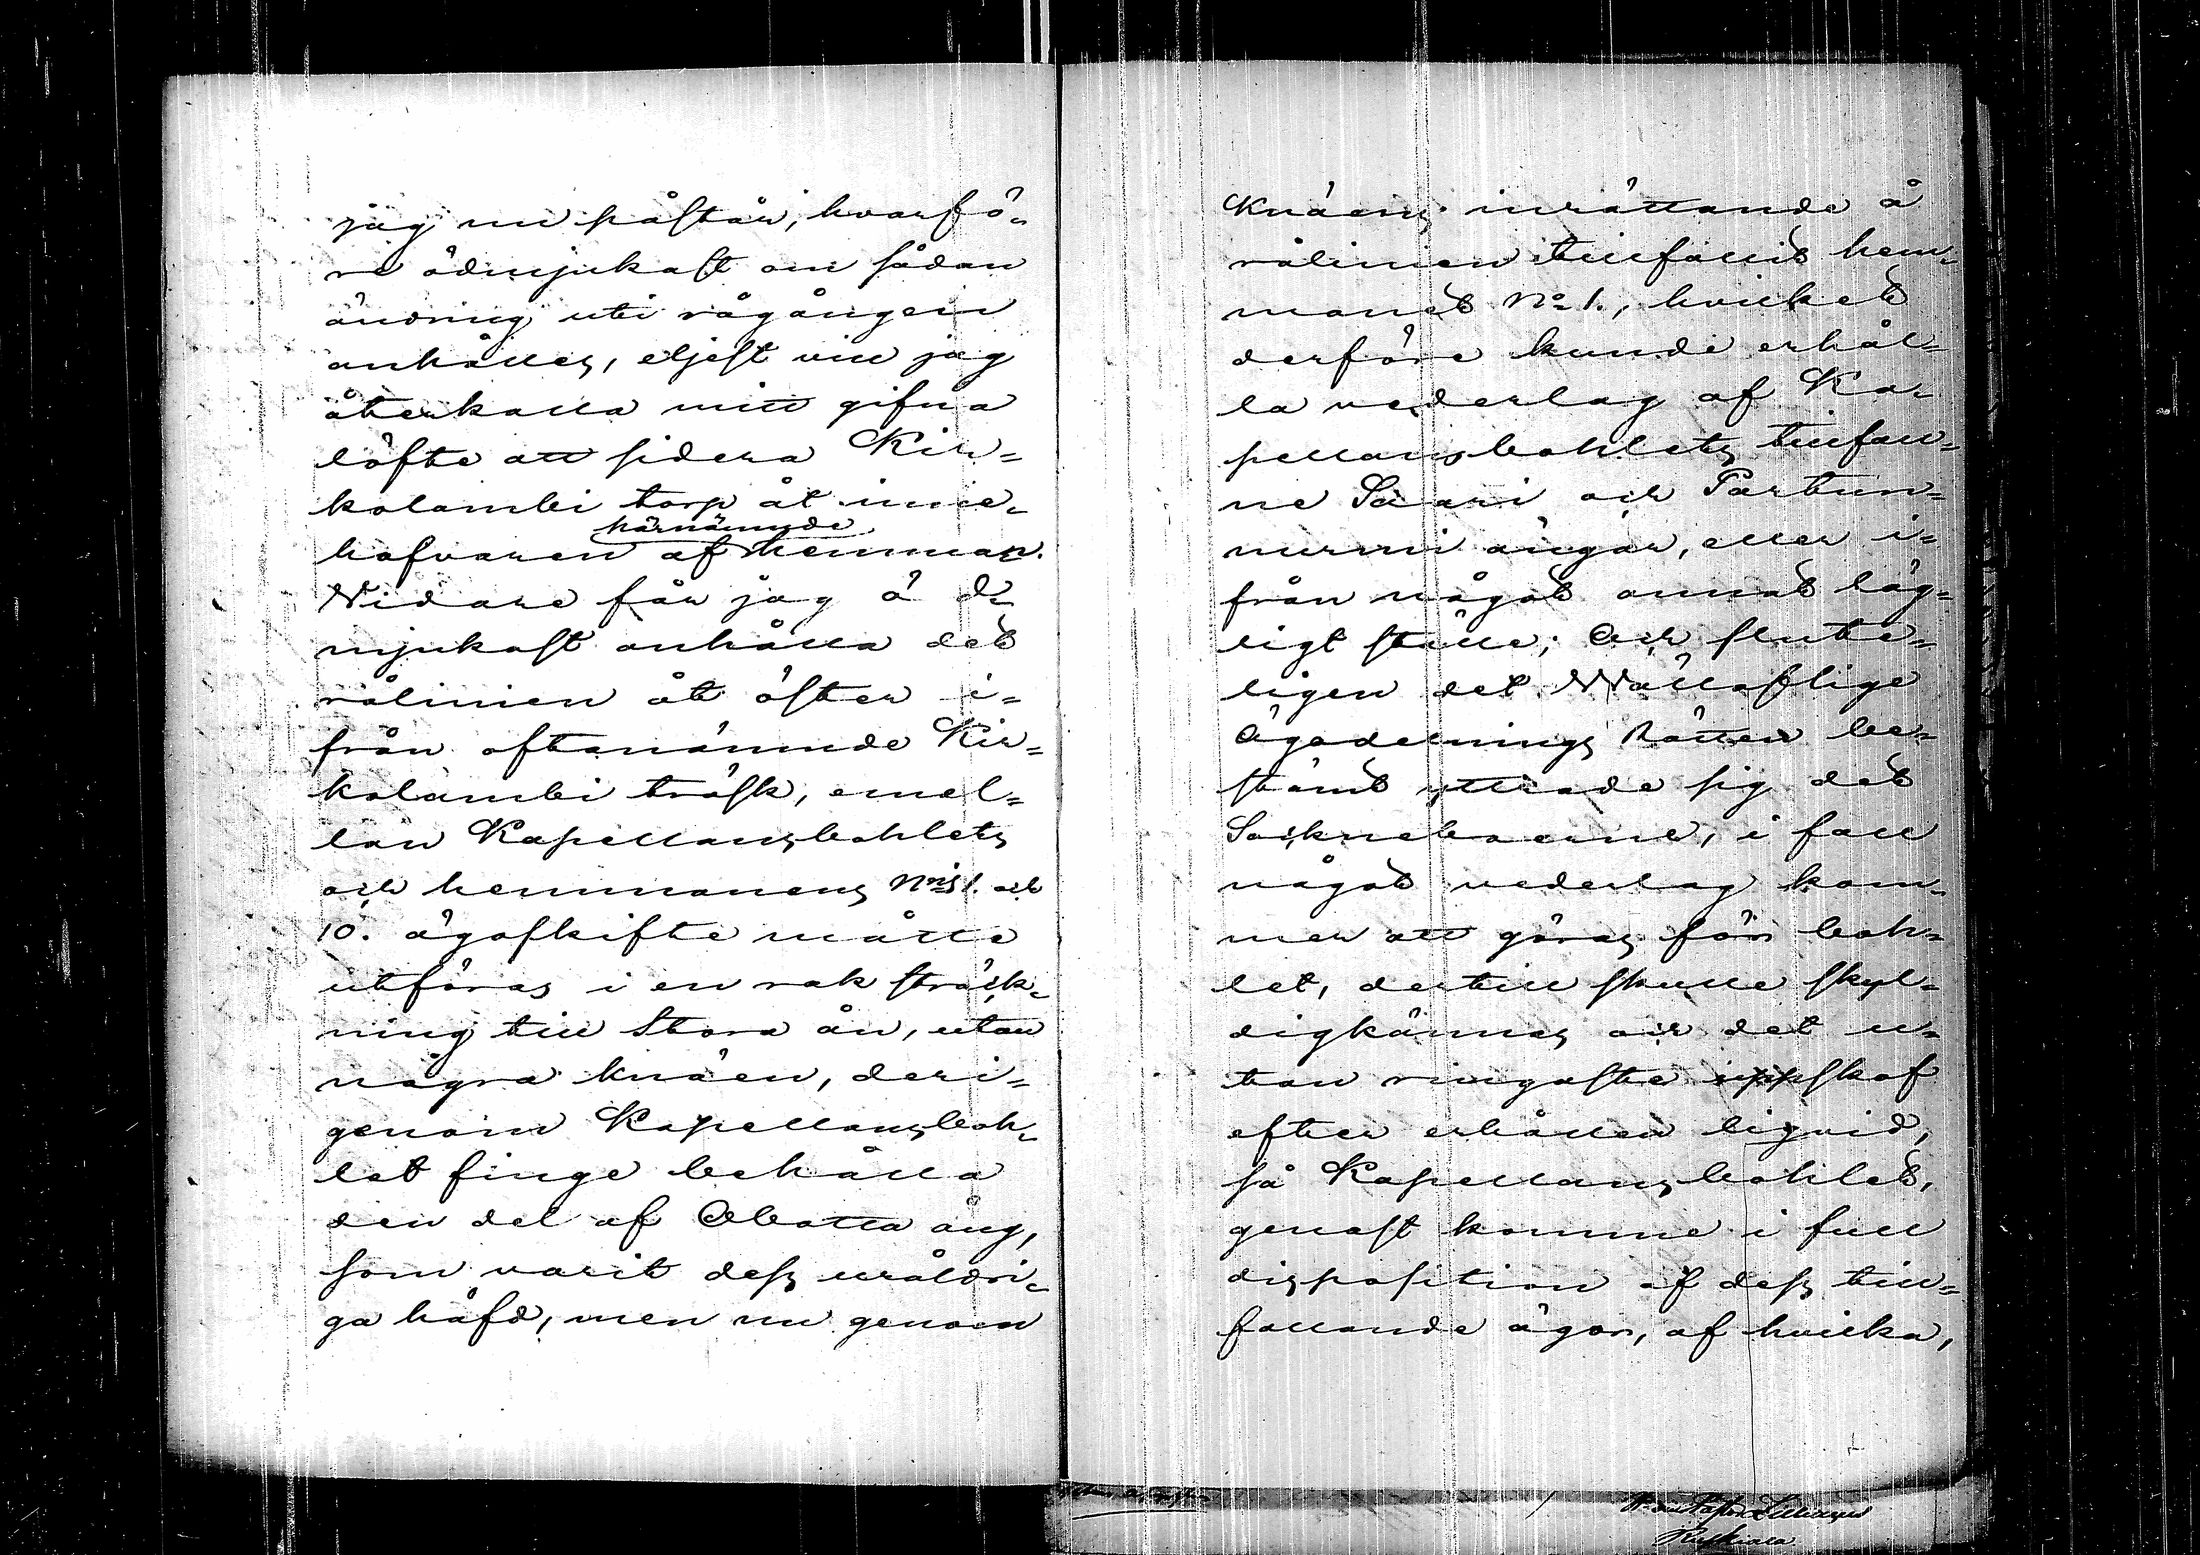 jag nu påstår, hvarfö-
re ödmjukast om sådan
ändring uti rågången
anhålles, eljest vill jag
återkalla mitt gifna
löfte att sidera Kir-
kolambi torp åt inne-
härnämnde
hafvaren af hemman.
Vidare får jag ö d-
mjukast anhålla det
rålinien åt öster i-
från oftanämnde Kir-
kolambi träsk, emel-
lan Kapellansbohlets
och hemmanens N:ris 1. och
10. ägoskifte måtte
utföras i en rak sträck-
ning till Stora ån, utan
några knäen, deri-
genom Kapellansboh-
let finge behålla
den del af Abatta äng,
som varit dess uråldri-
ga häfd, men nu genom
Knäens inrättande å
rålinien tillfallit hem-
manet No 1., hvilket
derföre kunde erhål-
la vederlag af Ka-
pellansbohlets tillfall-
ne Saari och Partun-
nurmi ängar, eller i-
från något annat läg-
ligt ställe; Och slute-
ligen det Vällofliga
Ägodelnings Rätten be-
stämt yttrade sig det
Sockneboerne, i fall
något vederlag kom-
mer att göras för boh-
let, dertill skulle skyl-
digkännas och det u-
tan ringaste uppskof
efter erhållen liqvid,
så Kapellansbohlet,
genast komme i full
disposition af dess till-
fallande ägor, af hvilka,
Ruskiala